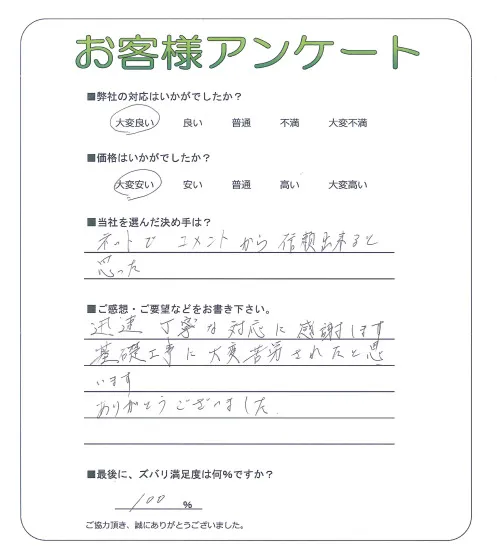 お客様アンケート
■弊社の対応はいかがでしたか？
大変良い 良い 普通 不満 大変不満
■価格はいかがでしたか？
大変安い 安い 普通 高い 大変高い
■当社を選んだ決め手は？
ネットで コメントから 信頼出来ると
思った
■ご感想・ご要望などをお書き下さい。
迅速 丁寧な対応に感謝します
基礎工事に大変苦労されたと思
います
ありがとうございました.
■最後に、ズバリ満足度は何%ですか？
100 %
ご協力頂き、誠にありがとうございました。